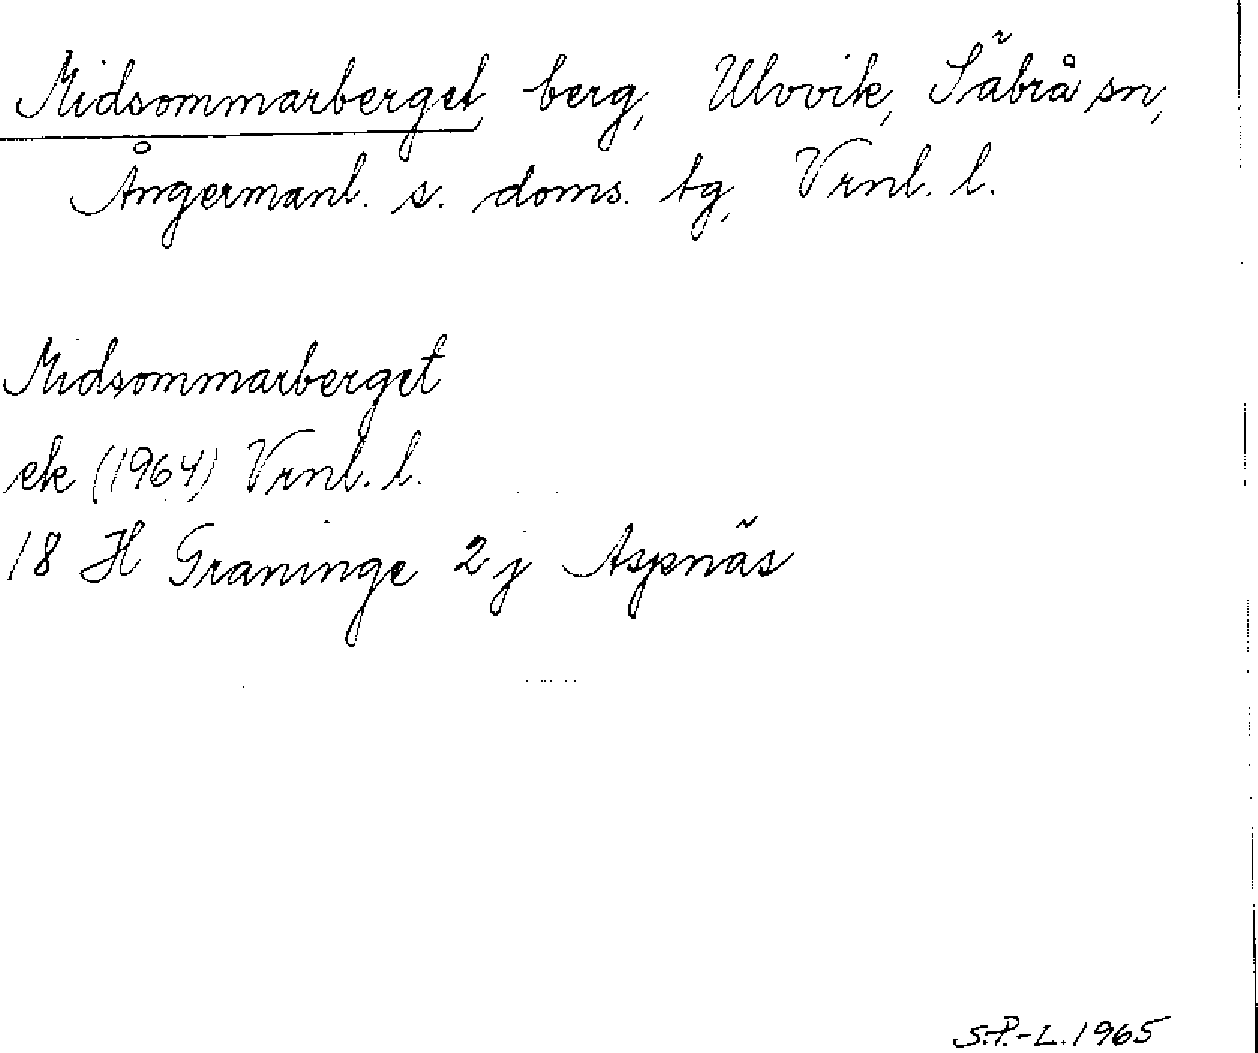 Midsommarberget, berg, Ulvvik, Säbrå sn,
Ångermanl. s. doms. tg, Vrnl. l.
Midsommarberget
ek (1964) Vrnl. l.
18 H Graninge 2 j Aspnäs
S.P.-L. 1965